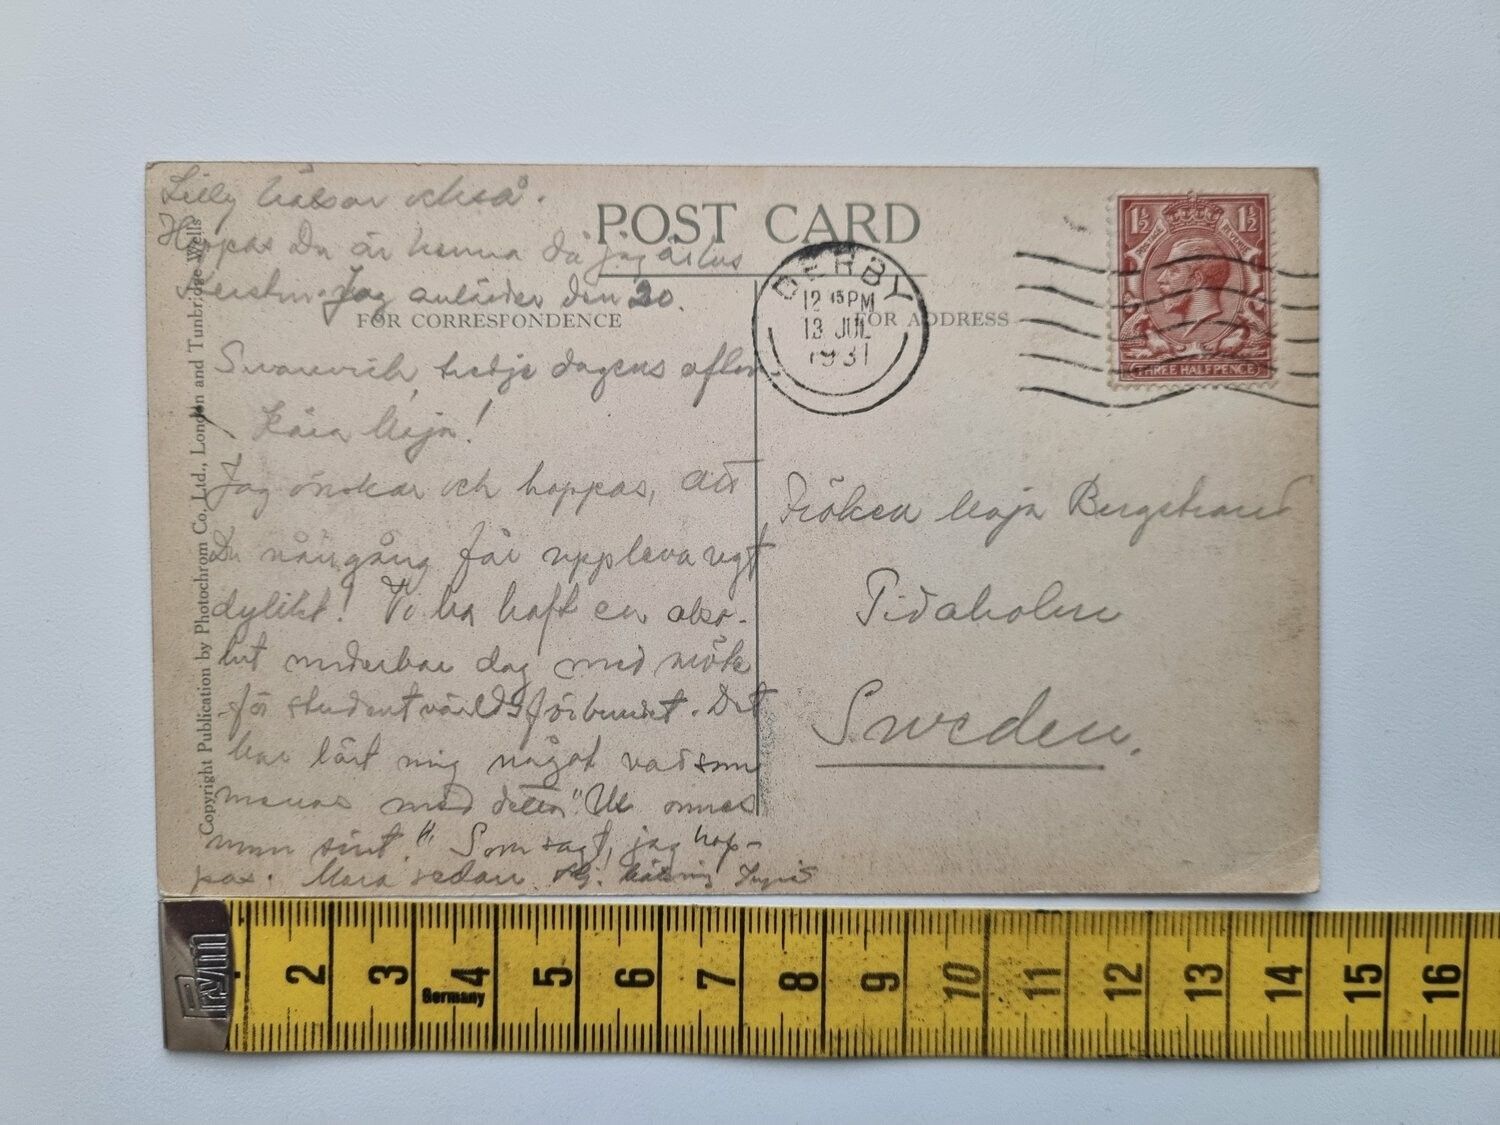 Lilly hälsar också.
Hoppas Du är hemma då jag är hos
Kerstin. Jag anländer den 20.
POST CARD
FOR CORRESPONDENCE
FOR ADDRESS
Swanwick, tredje dagens afton
Kära Maja!
Jag önskar och hoppas, att
Du någång får uppleva ngt
dylikt! Vi ha haft en abso-
lut underbar dag med möte
för studentvärldsförbundet. Det
har lärt mig något vad som
menas med detta "Ut omnes
unum sint." Som sagt, jag hop-
pas. Mera sedan
Copyright Publication by Photochrom Co. Ltd., London and Tunbridge Wells
DERBY
12 15 PM
13 JUL
1931
1½ 1½
POSTAGE REVENUE
THREE HALFPENCE
Fröken Maja Bergstrand
Tidaholm
Sweden.
Prym
2 3 4 5 6 7 8 9 10 11 12 13 14 15 16
Germany